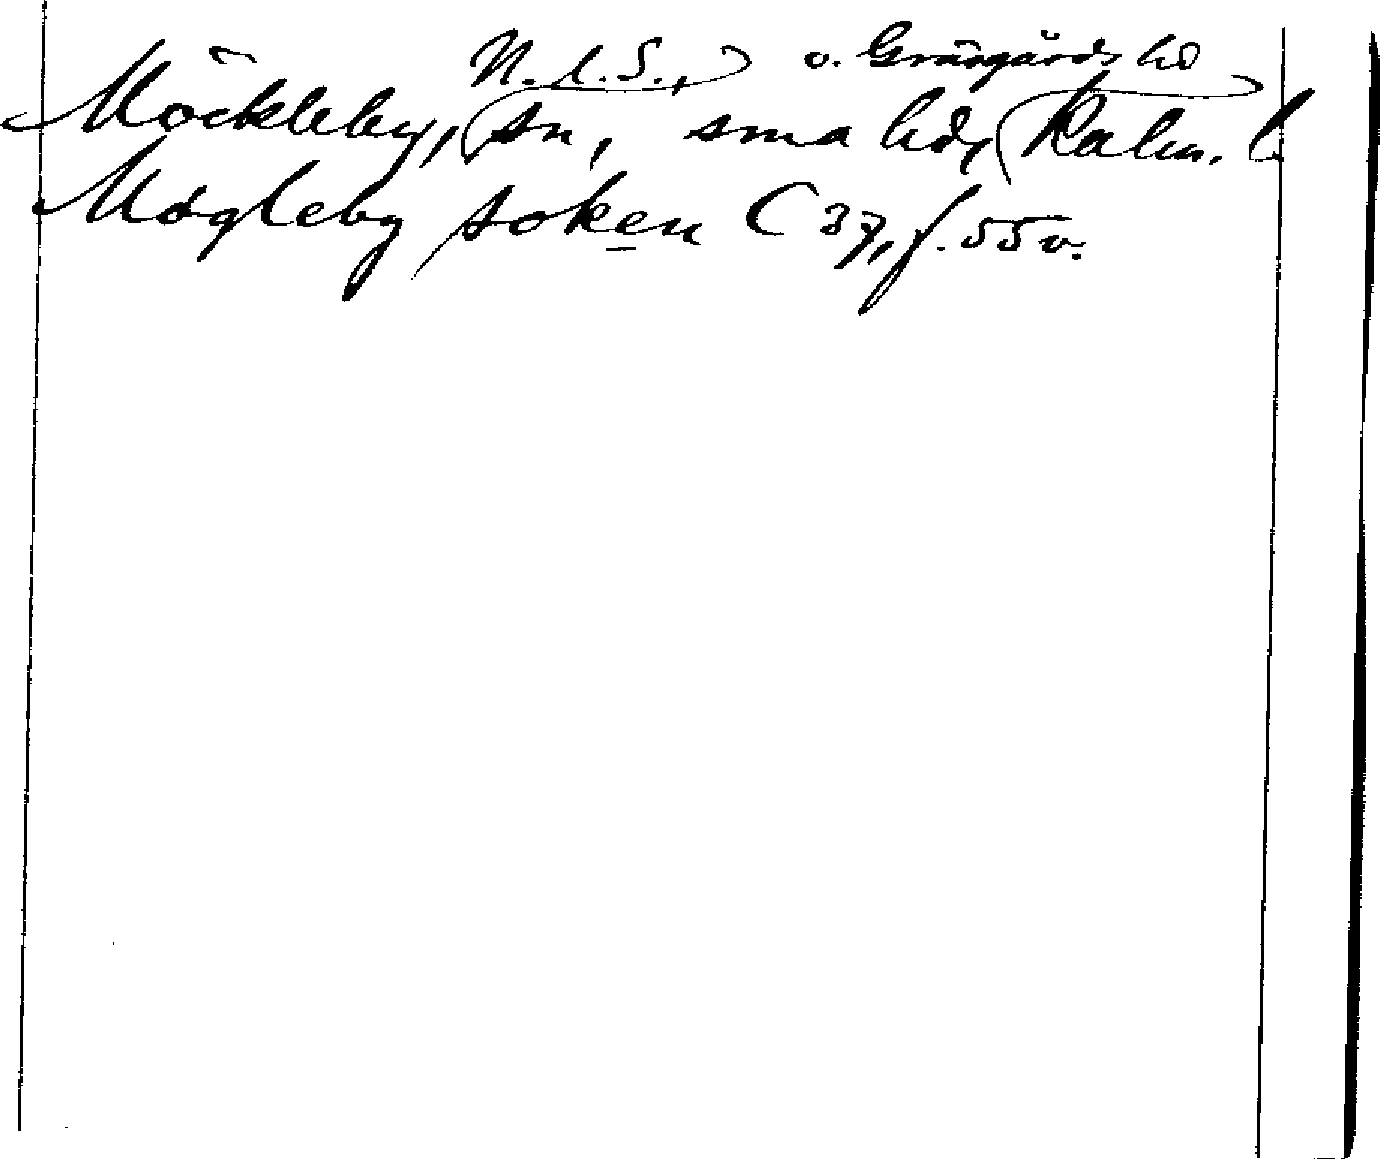 N. l. S., v. Gräsgårds hd
Möckleby, sn, sma hd, Kalm. l.
Møgleby soken C 37, f. 55 v.